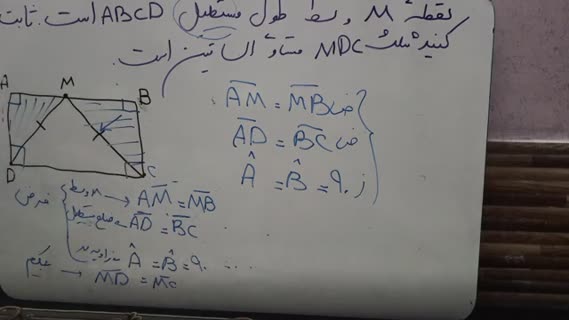 نقطهٔ M وسط طول مستطیل ABCD است. ثابت
کنید مثلث MDC متساوی الساقین است.
A M B
D C
ض AM = MB
ض AD = BC
ز Â = B̂ = ۹۰
فرض
M وسط → AM = MB
ضلع مستطیل AD = BC
Â = B̂ = ۹۰
حکم → MD = MC